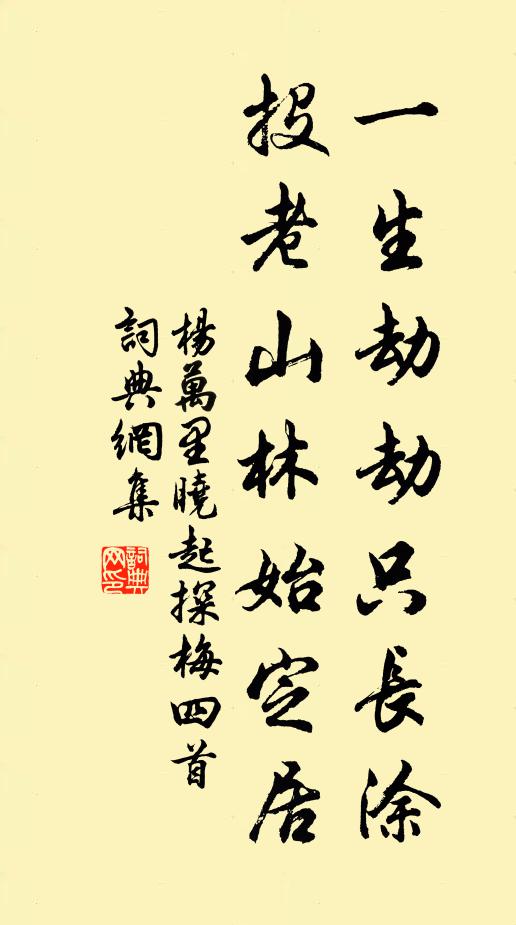 一生劫劫只長涂
投老山林始定居
楊萬里曉起探梅四首
詞典網集
詞典網印